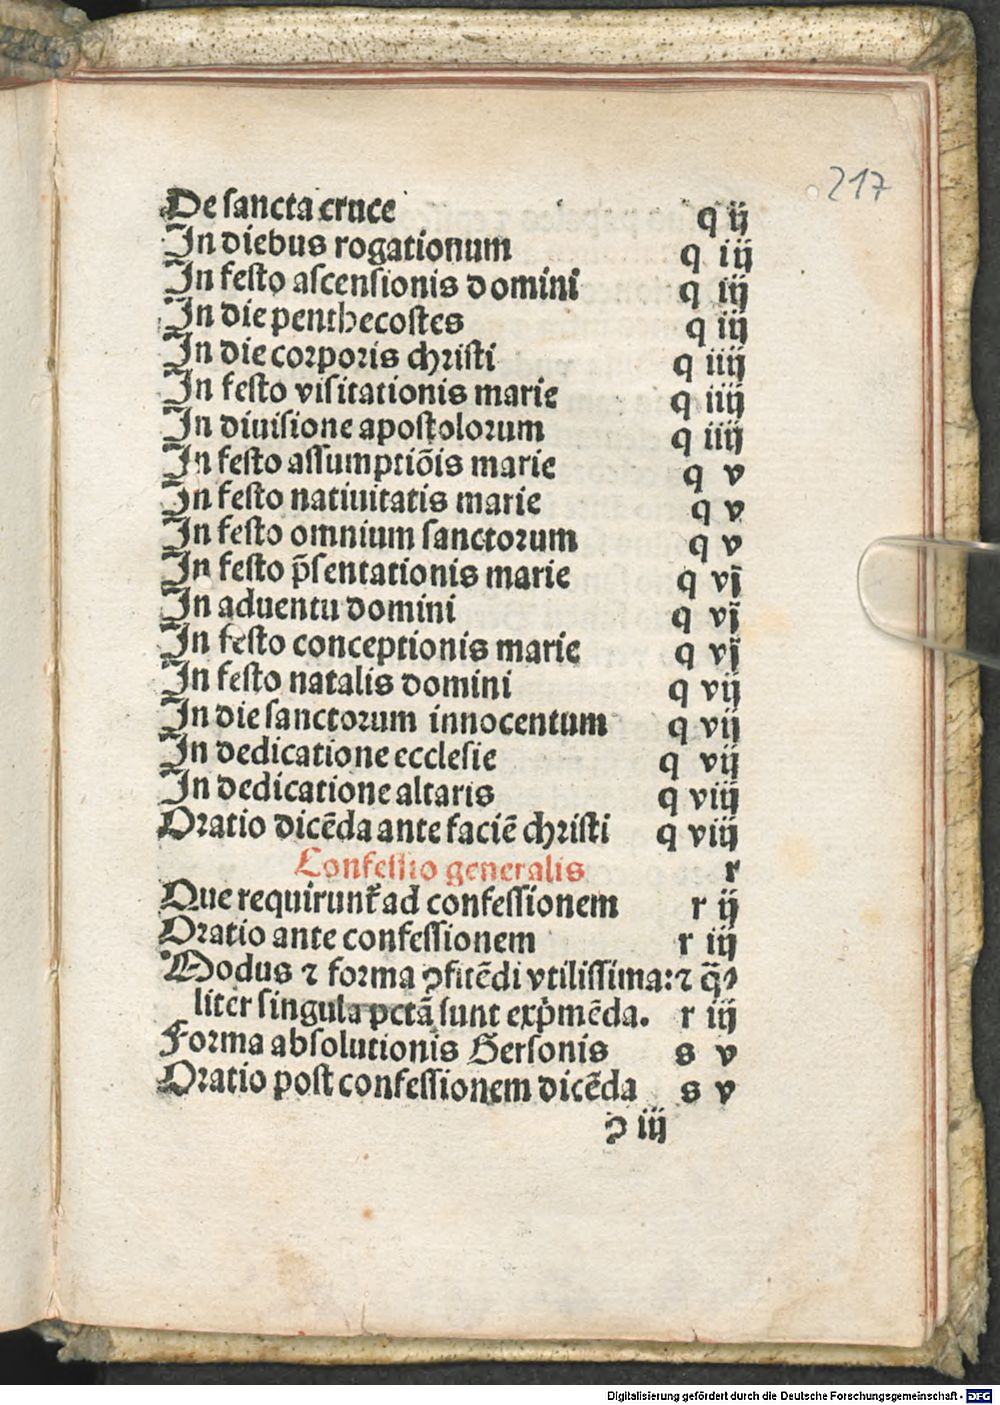 217
De sancta cruce q ij
In diebus rogationum q iij
In festo ascensionis domini q iij
In die penthecostes q iij
In die corporis christi q iiij
In festo visitationis marie q iiij
In diuisione apostolorum q iiij
In festo assumptiõis marie q v
In festo natiuitatis marie q v
In festo omnium sanctorum q v
In festo p̃sentationis marie q vj
In aduentu domini q vj
In festo conceptionis marie q vj
In festo natalis domini q vij
In die sanctorum innocentum q vij
In dedicatione ecclesie q vij
In dedicatione altaris q viij
Oratio dicẽda ante faciẽ christi q viij
Confessio generalis r
Que requirunt᷑ ad confessionem r ij
Oratio ante confessionem r iij
Modus ⁊ forma ꝯfitẽdi vtilissima: ⁊ q̃ꝰ
liter singula pctã sunt exp̍mẽda. r iij
Forma absolutionis Gersonis s v
Oratio post confessionem dicẽda s v
ꝯ iij
Digitalisierung gefördert durch die Deutsche Forschungsgemeinschaft - DFG